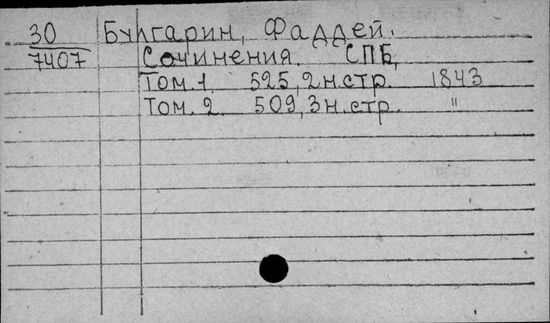 30 Булгарин, Фаддей.
7407 Сочинения. СПБ,
Том. 1. 525, 2 н. стр. 1843
Том. 2. 509, 3 н. стр. "